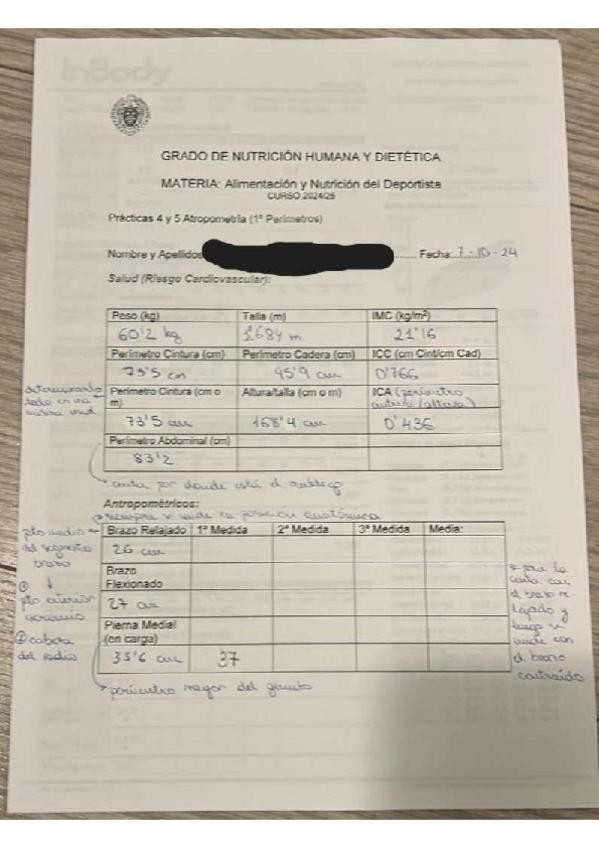 InBody
GRADO DE NUTRICIÓN HUMANA Y DIETÉTICA
MATERIA: Alimentación y Nutrición del Deportista
CURSO 2024/25
Prácticas 4 y 5 Atropometría (1º Perímetros)
Nombre y Apellidos ....... Fecha: 7-10-24
Salud (Riesgo Cardiovascular):
Peso (kg) Talla (m) IMC (kg/m²)
60'2 kg 1'684 m 21'16
Perímetro Cintura (cm) Perímetro Cadera (cm) ICC (cm Cint/cm Cad)
73'5 cm 95'9 cm 0'766
Perímetro Cintura (cm o m) Altura/talla (cm o m) ICA (perímetro cintura/altura)
73'5 cm 168'4 cm 0'436
todo en la misma unid.
Perímetro Abdominal (cm)
83'2
cinta por donde está el ombligo
Antropométricos:
siempre se mide en posición anatómica
Brazo Relajado 1ª Medida 2ª Medida 3ª Medida Media:
26 cm
pto medio del segmento brazo
Brazo Flexionado
27 cm
pto
② cabeza del radio
Pierna Medial (en carga)
35'6 cm 37
perímetro mayor del
la cinta con el brazo relajado y luego se mide con el brazo contraído